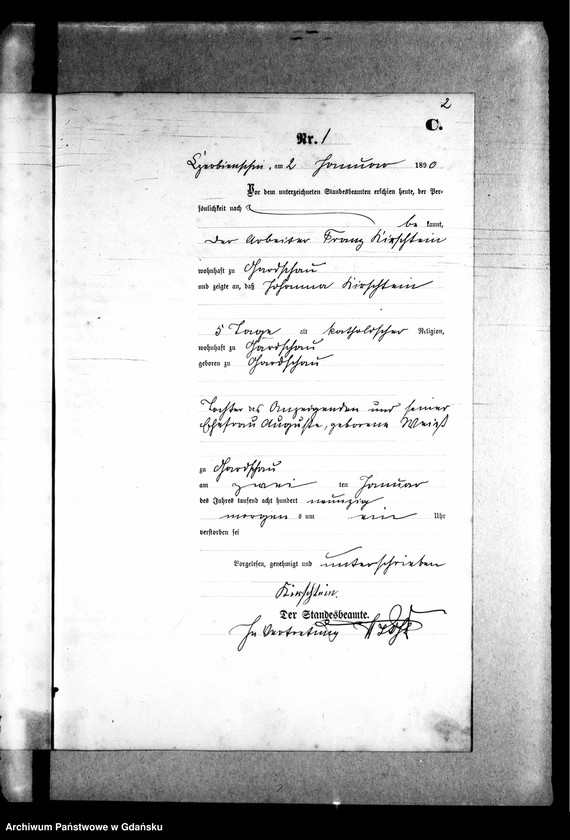 2
C.
Nr. 1
Czerbienschin, am 2 Januar 1890
Vor dem unterzeichneten Standesbeamten erschien heute, der Per-
sönlichkeit nach
be kannt,
der Arbeiter Franz Kirschtein
wohnhaft zu Gardschau
und zeigte an, daß Johanna Kirschtein
5 Tage alt katholischer Religion,
wohnhaft zu Gardschau
geboren zu Gardschau
Tochter des Anzeigenden und seiner
Ehefrau Auguste, geborene Weiß
zu Gardschau
am zwei ten Januar
des Jahres tausend acht hundert neunzig
morgen s um ein Uhr
verstorben sei
Vorgelesen, genehmigt und unterschrieben
Kirschtein.
Der Standesbeamte.
In Vertretung
Archiwum Państwowe w Gdańsku